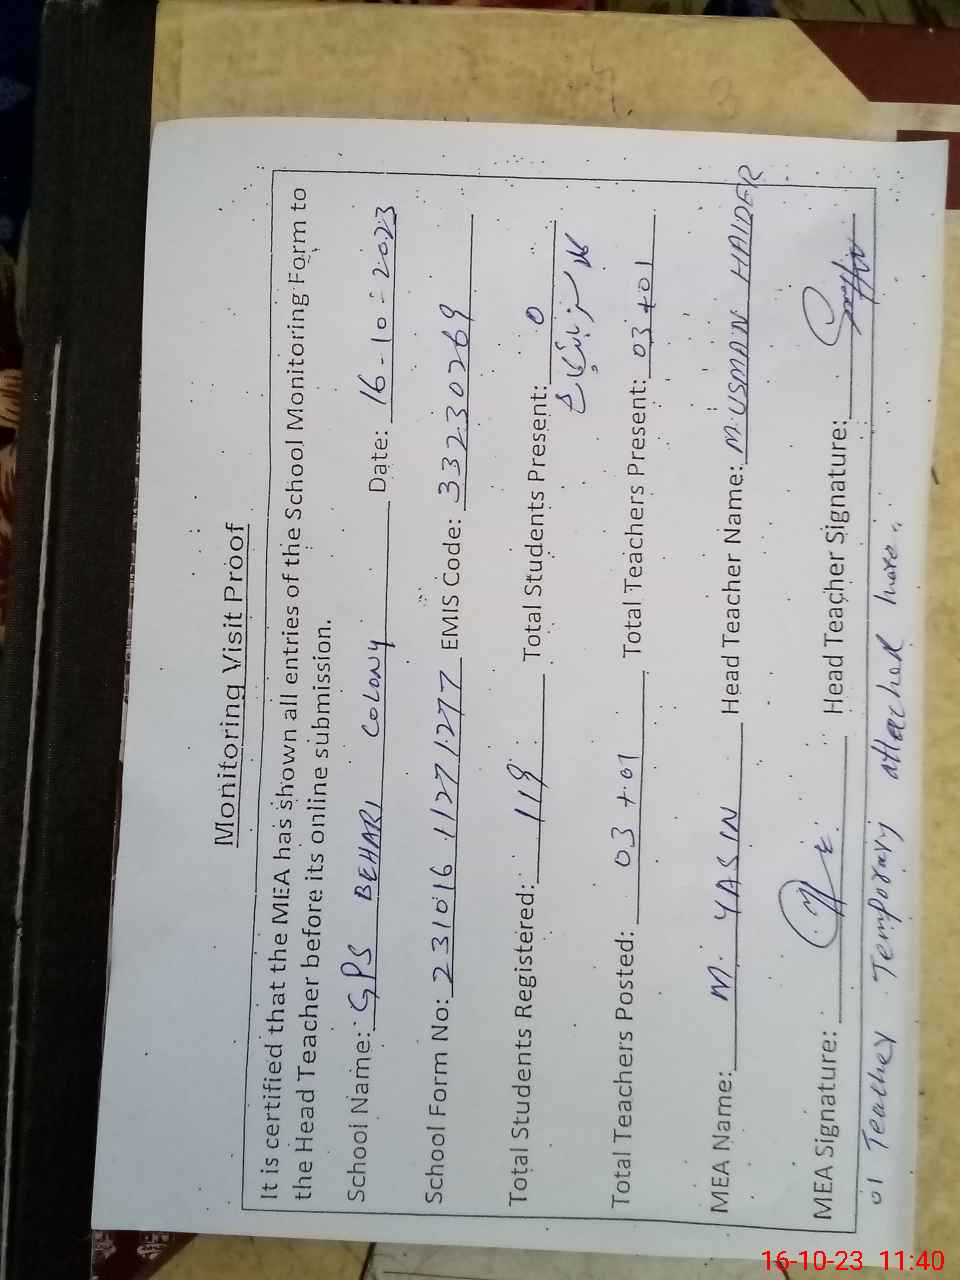 Monitoring Visit Proof
It is certified that the MEA has shown all entries of the School Monitoring Form to
the Head Teacher before its online submission.
School Name: GPS BEHARI COLONY Date: 16-10-2023
School Form No: 231016 1127 1277 EMIS Code: 33230269
Total Students Registered: 119 Total Students Present: 0
Total Teachers Posted: 03+01 Total Teachers Present: 03+01
MEA Name: M. YASIN Head Teacher Name: M. USMAN HAIDER
MEA Signature: Head Teacher Signature:
01 Teacher Temporary attached here.
16-10-23 11:40